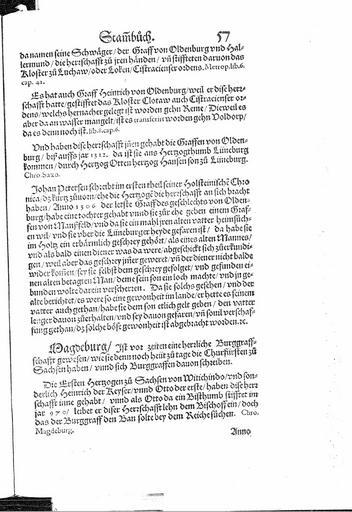 Stam̃bůch. 57
da namen seine Schwäger / der Graff von Oldenburg vnd Hal-
lermund / die herrschafft zů jren händen / vñ stiffteten daruon das
Kloster zů Luchaw / oder Loken / Cistracienser ordens. Metrop. lib. 6.
cap. 42.
Es hat auch Graff Heinrich von Oldenburg / weil er diß herr-
schafft hatte / gestifftet das Kloster Clotaw auch Cistracienser or-
dens / welchs hernacher gelegt ist worden gehn Rene / Dieweil es
aber da an wasser mangelt / ist es transferirt worden gehn Voldorp /
da es denn noch ist. lib. 8. cap. 6.
Vnd haben diß herrschafft jñen gehabt die Graffen von Olden-
burg / biß auffs jar 1512. da ist sie ans Hertzogthumb Lüneburg
kommen / durch Hertzog Otten hertzog Hansen son zů Lüneburg.
Chro. Saxo.
Johan Petersen schreibt im ersten theil seiner Holsteinische Chro
nica / dz kürtz züuorn / ehe die Hertzoge die herrschafft an sich bracht
haben / Anno 1506 der letste Graff des geschlechts von Olden-
burg / habe eine tochter gehabt vnnd sie zür ehe geben einem Graf-
fen von Manßfeld / vnd da sie ein mahl jren alten vatter heimsüch-
en wil / vnd sie vber die Lüneburger heyde gefaren ist / da habe sie
im Holtz ein erbärmlich geschrey gehört / als eines alten Mannes /
vnd als bald einen diener was da were / abgeschickt sich zů erkündi-
gen / weil aber das geschrey jm̃er geweret / vñ der diener nicht balde
wider kom̃en / sey sie selbst dem geschrey gefolget / vnd gefunden ei-
nen alten betagten Man / deme sein son ein loch machte / vnd jn ge-
bunden wolte darein verscherren. Da sie solchs gesehen / vnd der
alte berichtet / es were so eine gewonheit im lande / er hette es seinem
vatter auch gethan / habe sie dem son etlich gelt geben / den vatter
lenger dauon zů erhalten / vnd sey dauon gefaren / vñ sonil verschaf-
fung gethan / dz solche böse gewonheit ist abgebracht worden. rc.
Magdeburg / Ist vor zeiten eine herrliche Burggraff-
schafft gewesen / wie sie denn noch heüt zů tage die Churfürsten zů
Sachsen haben / vnnd sich Burggraffen dauon schreiben.
Die Ersten Hertzogen zů Sachsen von Witichindo / vnd son-
derlich Heinrich der Keyser / vnnd Otto der erste / haben diß herr-
schafft inne gehabt / vnnd als Otto da ein Bisthumb stifftet im
jar 970 / leihet er diser Herrschafft lehn dem Bischoff ein / doch
das der Burggraff den Ban solte bey dem Reiche süchen. Chro.
Magdeburg.
Anno